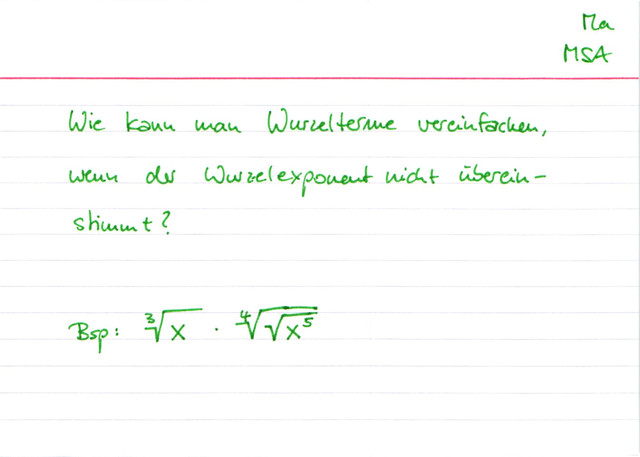 Ma
MSA
Wie kann man Wurzelterme vereinfachen,
wenn der Wurzelexponent nicht überein-
stimmt?
Bsp: ∛x · ∜√x⁵